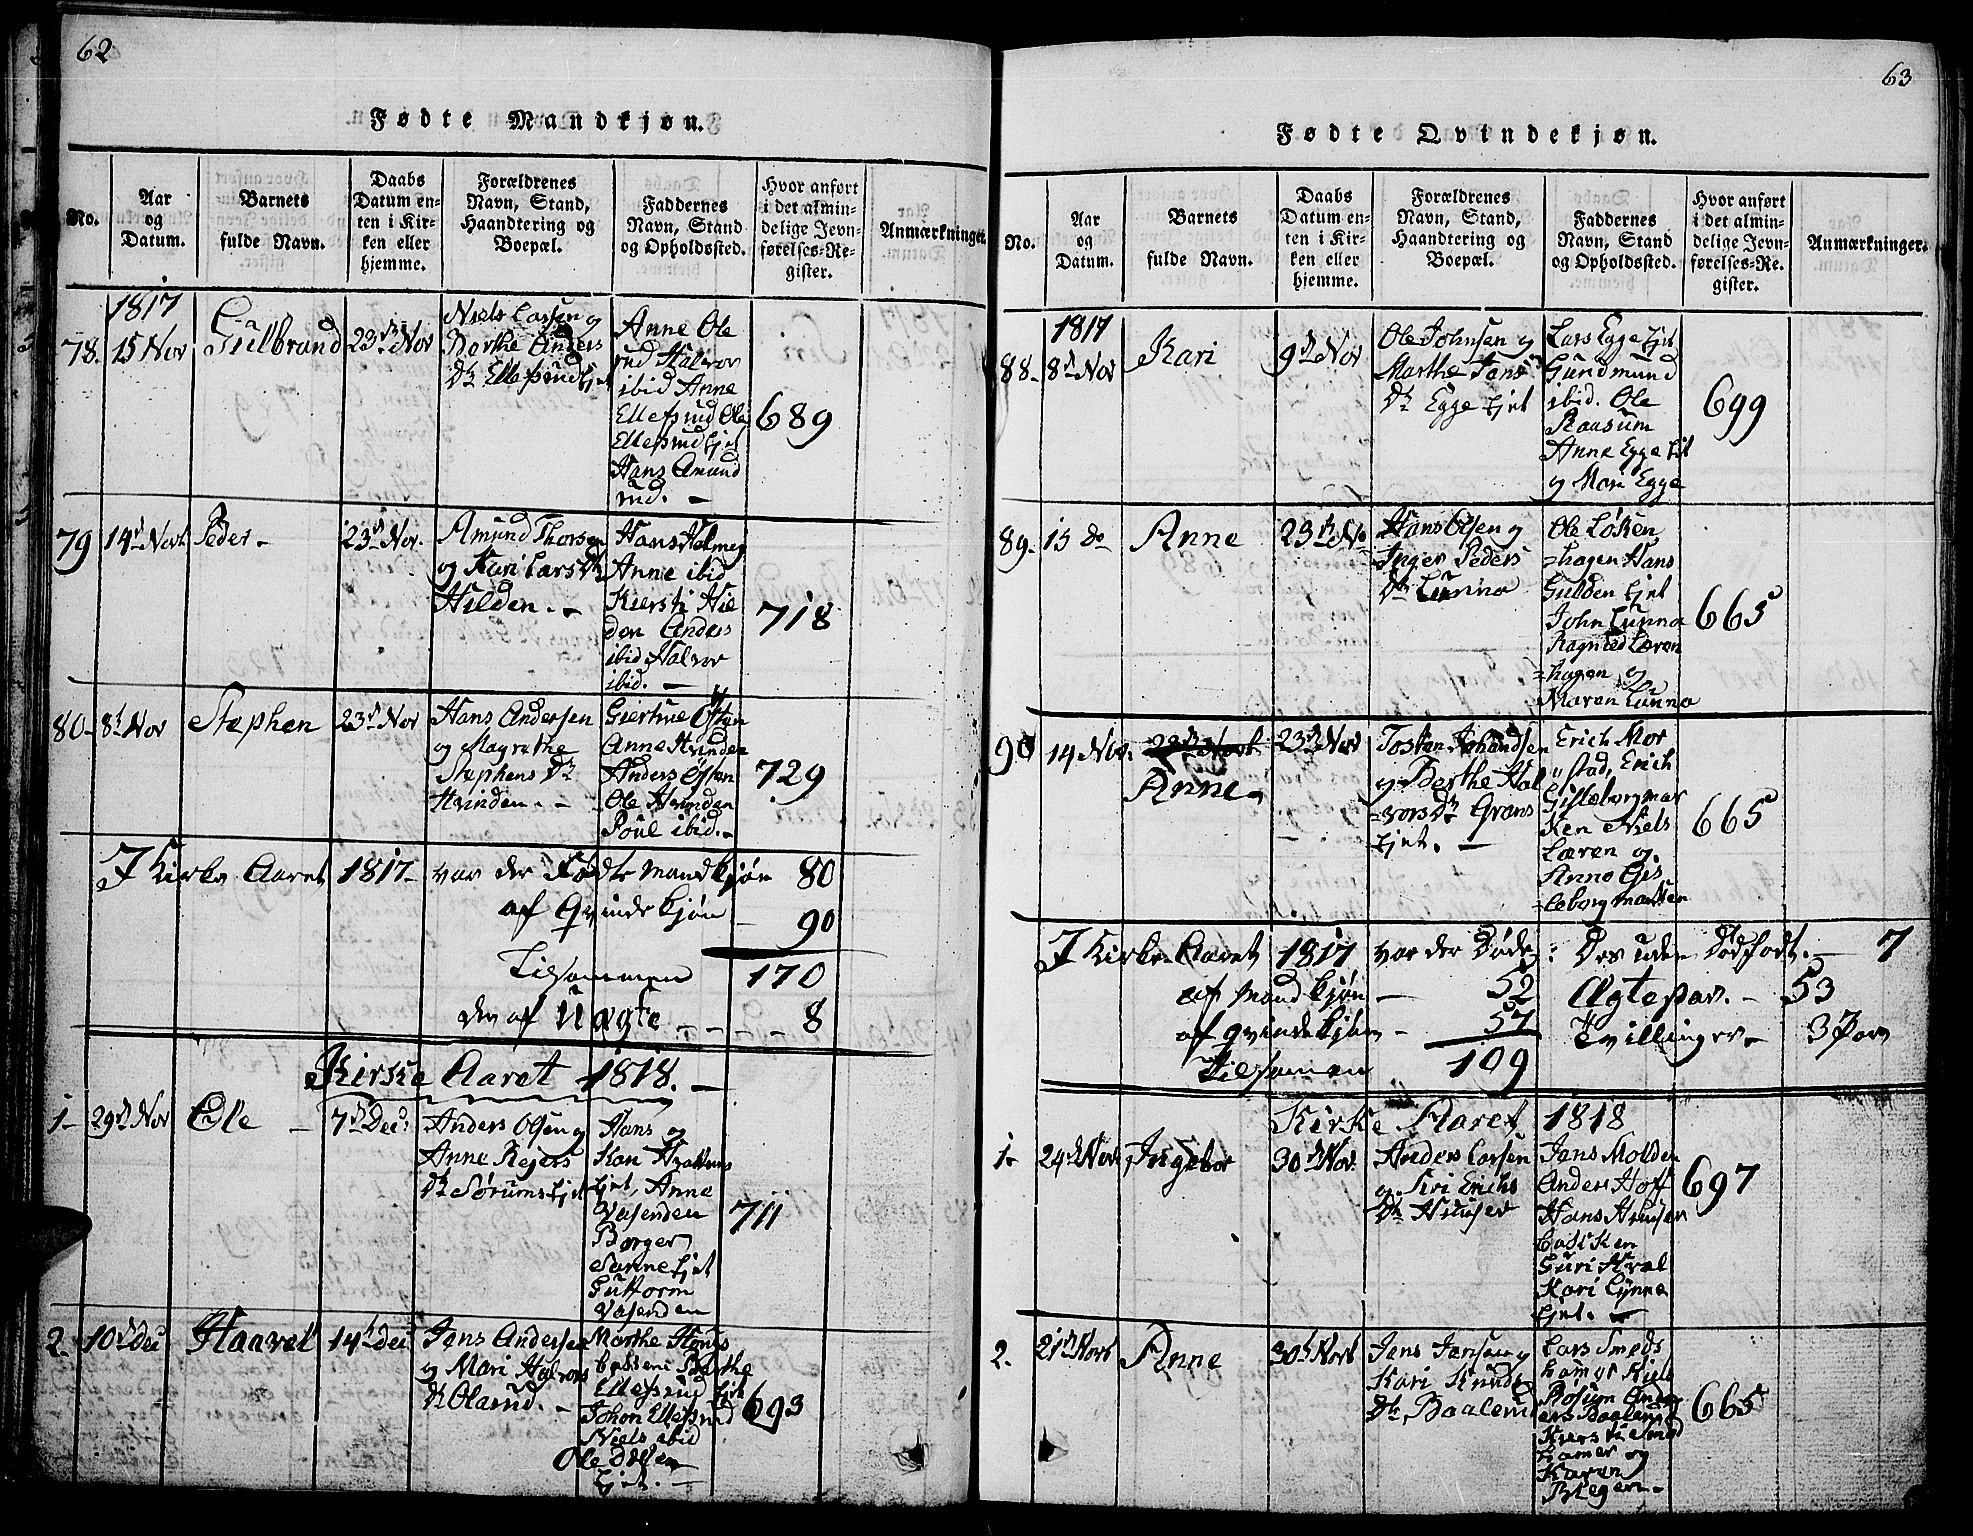 62
Fødte Mandkjøn.
No.
Aar
og
Datum.
Barnets
fulde Navn.
Daabs
Datum en-
ten i Kir-
ken eller
hjemme.
Forældrenes
Navn, Stand,
Haandtering og
Boepæl.
Faddernes
Navn, Stand
og Opholdssted.
Hvor anført
i det almin-
delige Jevn-
førelses-Re-
gister.
Anmærkninger.
1817
78. 15 Nov
Gulbrand
23d Nov
Niels Larsen og
Berthe Anders
Dr Ellefsrud Ejet
Anne Ole
rud Halvor
ibid Anne
Ellefsrud Ole
Ellefsrud Ejet
Hans Amund
rud. -
689
79 14d Novb
Peder -
23d Nov.
Amund Thorsen
og Kari Lars Dr
Hilden. -
Hans Halmey
Anne ibid
Kiersti Hil
den Anders
ibid Halvor
ibid. -
718
80- 8d Nov
Stephen
23d Nov
Hans Andersen
og Magrethe
Stephens Dr
Hvinden. -
Giertrue Østen
Anne Hvinden
Anders Østen
Ole Hvinden
Poul ibid. -
729
I Kirke Aaret 1817- var der Fødte mandkjøn 80
af Qvindekjøn - 90
Tilsammen 170
der af Uægte - - - 8
Kirke Aaret 1818. -
1- 29d Nov
Ole -
7d Dec:
Anders Olsen og
Anne Rejers
Dr Sørums Ejet
Hans og
Kari
Ejet, Anne
Vasenden
Børger
Sanne Ejet
Guttorm
Vasenden
711
2- 10d Dec
Haavel
14d Dec
Jens Andersen
og Mari Halvors
Dr Olarud. -
Marthe
Berthe
Ellefsrud Ejet
Johan Ellefsrud
Niels ibid
Ole
Ejet. -
693
63
Fødte Qvindekjøn.
No.
Aar
og
Datum.
Barnets
fulde Navn.
Daabs
Datum en-
ten i Kir-
ken eller
hjemme.
Forældrenes
Navn, Stand,
Haandtering og
Boepæl.
Faddernes
Navn, Stand
og Opholdssted.
Hvor anført
i det almin-
delige Jevn-
førelses-Re-
gister.
Anmærkninger.
1817
88- 8d Nov
Kari
9d Nov
Ole Johnsen og
Marthe Jens
Dr Egge Ejet
Lars Egge Ejet
Gundmund
ibid. Ole
Raasum
Anne Egge Ejet
og Mari Egge
699
89- 15 do
Anne
23d No
Hans Olsen og
Inger Peders
Dr Lunna
Ole Løken
=hagen Hans
Gulden Ejet
John Lunna
Ragnild Løren
=hagen og
Maren Lunna
665
90 14 Nov.
Anne -
23d Nov
Tosten
og Berthe Hal
=vors Dr Grans
Ejet. -
Erich Mor
"stad, Erich
Gisleborgmar
ken Niels
Løren og
Anne Gis
=leborgmarken
665
I Kirke Aaret 1817 var der Døde: Des uden Dødfødt. - 7
af Mandkjøn - 52 Ægtepar. - 53
af qvindekjøn - 57 Tvillinger - 3 Par
Tilsammen 109
Kirke Aaret 1818
1- 24d Nov
Ingebor
30d Nov.
Anders Larsen
og Siri Erichs
Dr Huuser
Jens Molden
Anders Hoff
Hans Huuser
Guri
Kari Lynne
Ejet. -
697
2. 21d Novb
Anne
30d Novb
Jens Jensen og
Kari Knuds
Dr Baalerud
Lars Smeds
hamer Niels
Røsum
Baalerud
Kiersti Smed
hamer og
Karen
Blegen -
665